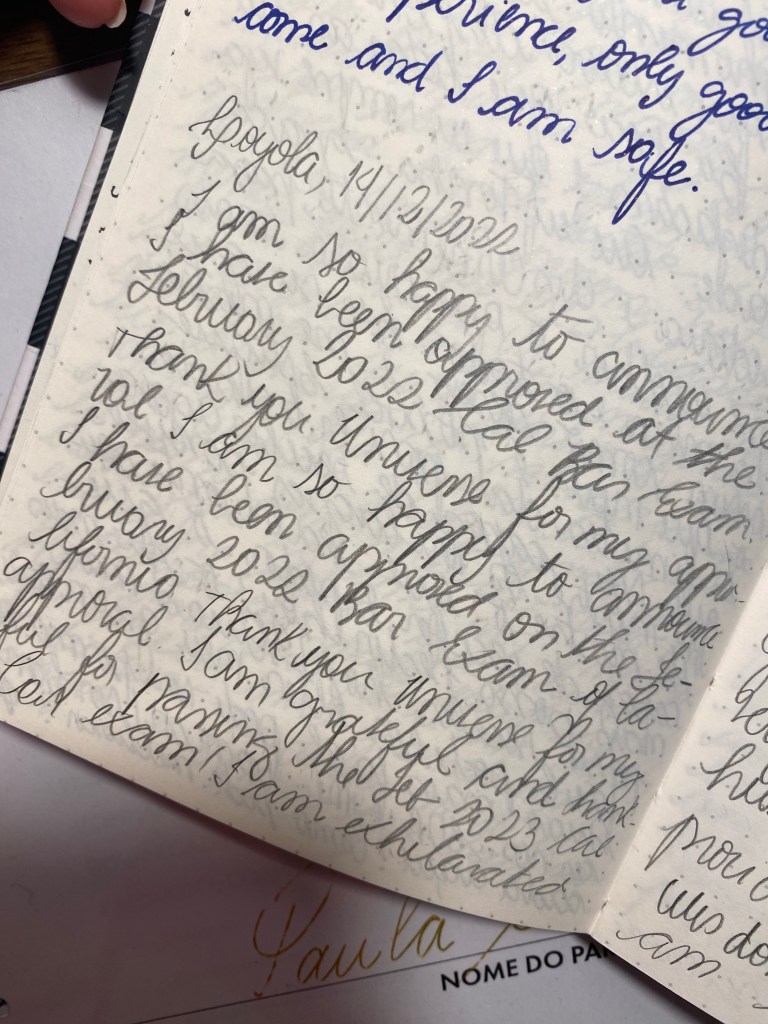 perience, only goo
come and I am safe.
Loyola, 14/12/2022
I am so happy to announce
I have been approved at the
February 2022 Cal Bar Exam
Thank you Universe for my appro-
val I am so happy to announce
I have been approved on the Fe-
bruary 2022 Bar Exam of Ca-
lifornia Thank you universe for my
approval. I am grateful and thank-
ful for passing the Feb 2023 Cal
bar exam! I am exhilarated
prou
was do
am
Paula
NOME DO PA